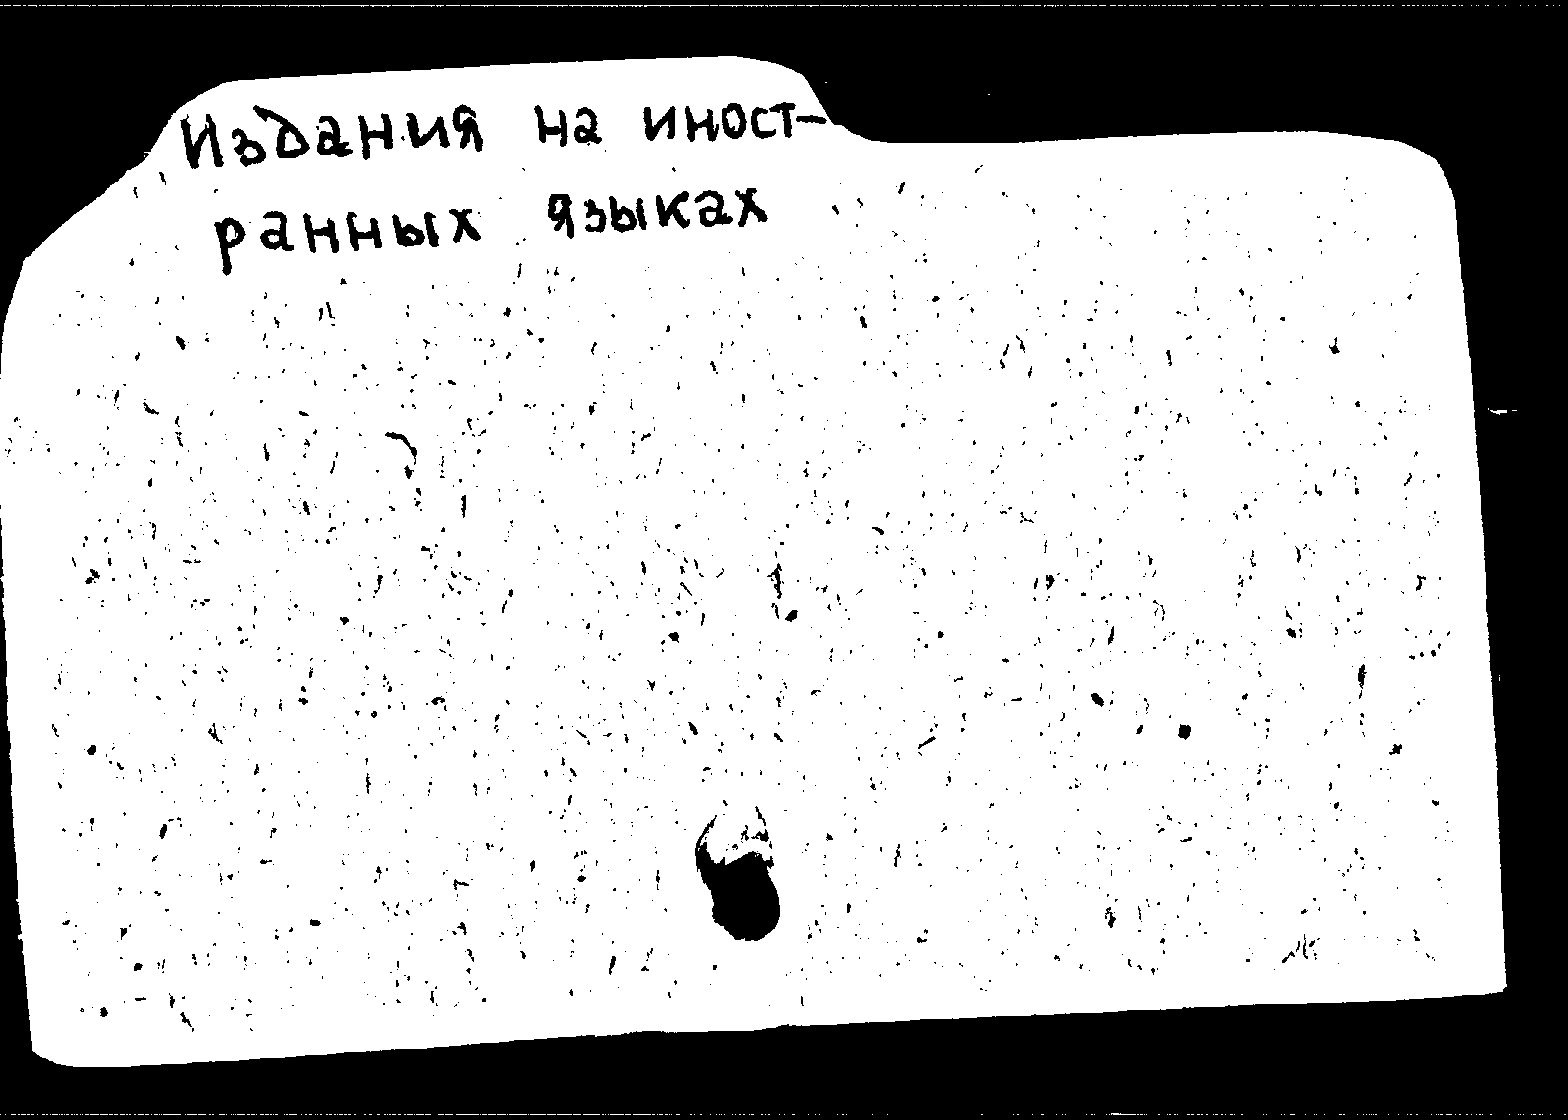 Издания на иност-
ранных языках